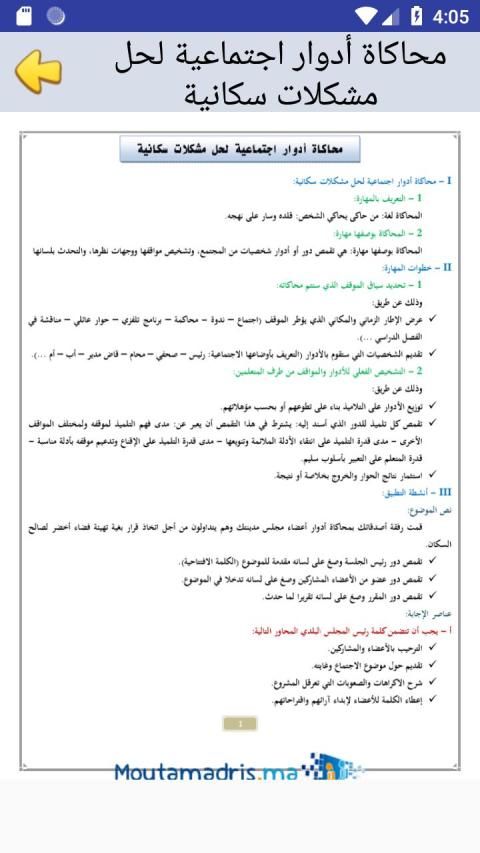 4:05
محاكاة أدوار اجتماعية لحل
مشكلات سكانية
محاكاة أدوار اجتماعية لحل مشكلات سكانية
I – محاكاة أدوار اجتماعية لحل مشكلات سكانية:
1 – التعريف بالمهارة:
المحاكاة لغة: من حاكى يحاكي الشخص: قلده وسار على نهجه.
2 – المحاكاة بوصفها مهارة:
المحاكاة بوصفها مهارة: هي تقمص دور أو أدوار شخصيات من المجتمع، وتشخيص مواقفها ووجهات نظرها، والتحدث بلسانها
II – خطوات المهارة:
1 – تحديد سياق الموقف الذي ستتم محاكاته:
وذلك عن طريق:
✓ عرض الإطار الزماني والمكاني الذي يؤطر الموقف (اجتماع – ندوة – محاكمة – برنامج تلفزي – حوار عائلي – مناقشة في
الفصل الدراسي ...).
✓ تقديم الشخصيات التي ستقوم بالأدوار (التعريف بأوضاعها الاجتماعية: رئيس – صحفي – محام – قاض مدير – أب – أم ...).
2 – التشخيص الفعلي للأدوار والمواقف من طرف المتعلمين:
وذلك عن طريق:
✓ توزيع الأدوار على التلاميذ بناء على تطوعهم أو بحسب مؤهلاتهم.
✓ تقمص كل تلميذ للدور الذي أسند إليه: يشترط في هذا التقمص أن يعبر عن: مدى فهم التلميذ لموقفه ولمختلف المواقف
الأخرى – مدى قدرة التلميذ على انتقاء الأدلة الملائمة وتنويعها – مدى قدرة التلميذ على الإقناع وتدعيم موقفه بأدلة مناسبة –
قدرة المتعلم على التعبير بأسلوب سليم.
✓ استثمار نتائج الحوار والخروج بخلاصة أو نتيجة.
III – أنشطة التطبيق:
نص الموضوع:
قمت رفقة أصدقائك بمحاكاة أدوار أعضاء مجلس مدينتك وهم يتداولون من أجل اتخاذ قرار بغية تهيئة فضاء أخضر لصالح
السكان.
✓ تقمص دور رئيس الجلسة وصغ على لسانه مقدمة للموضوع (الكلمة الافتتاحية).
✓ تقمص دور عضو من الأعضاء المشاركين وصغ على لسانه تدخلا في الموضوع.
✓ تقمص دور المقرر وصغ على لسانه تقريرا لما حدث.
عناصر الإجابة:
أ – يجب أن تتضمن كلمة رئيس المجلس البلدي المحاور التالية:
✓ الترحيب بالأعضاء والمشاركين.
✓ تقديم حول موضوع الاجتماع وغايته.
✓ شرح الاكراهات والصعوبات التي تعرقل المشروع.
✓ إعطاء الكلمة للأعضاء لإبداء آرائهم واقتراحاتهم.
1
Moutamadris.ma